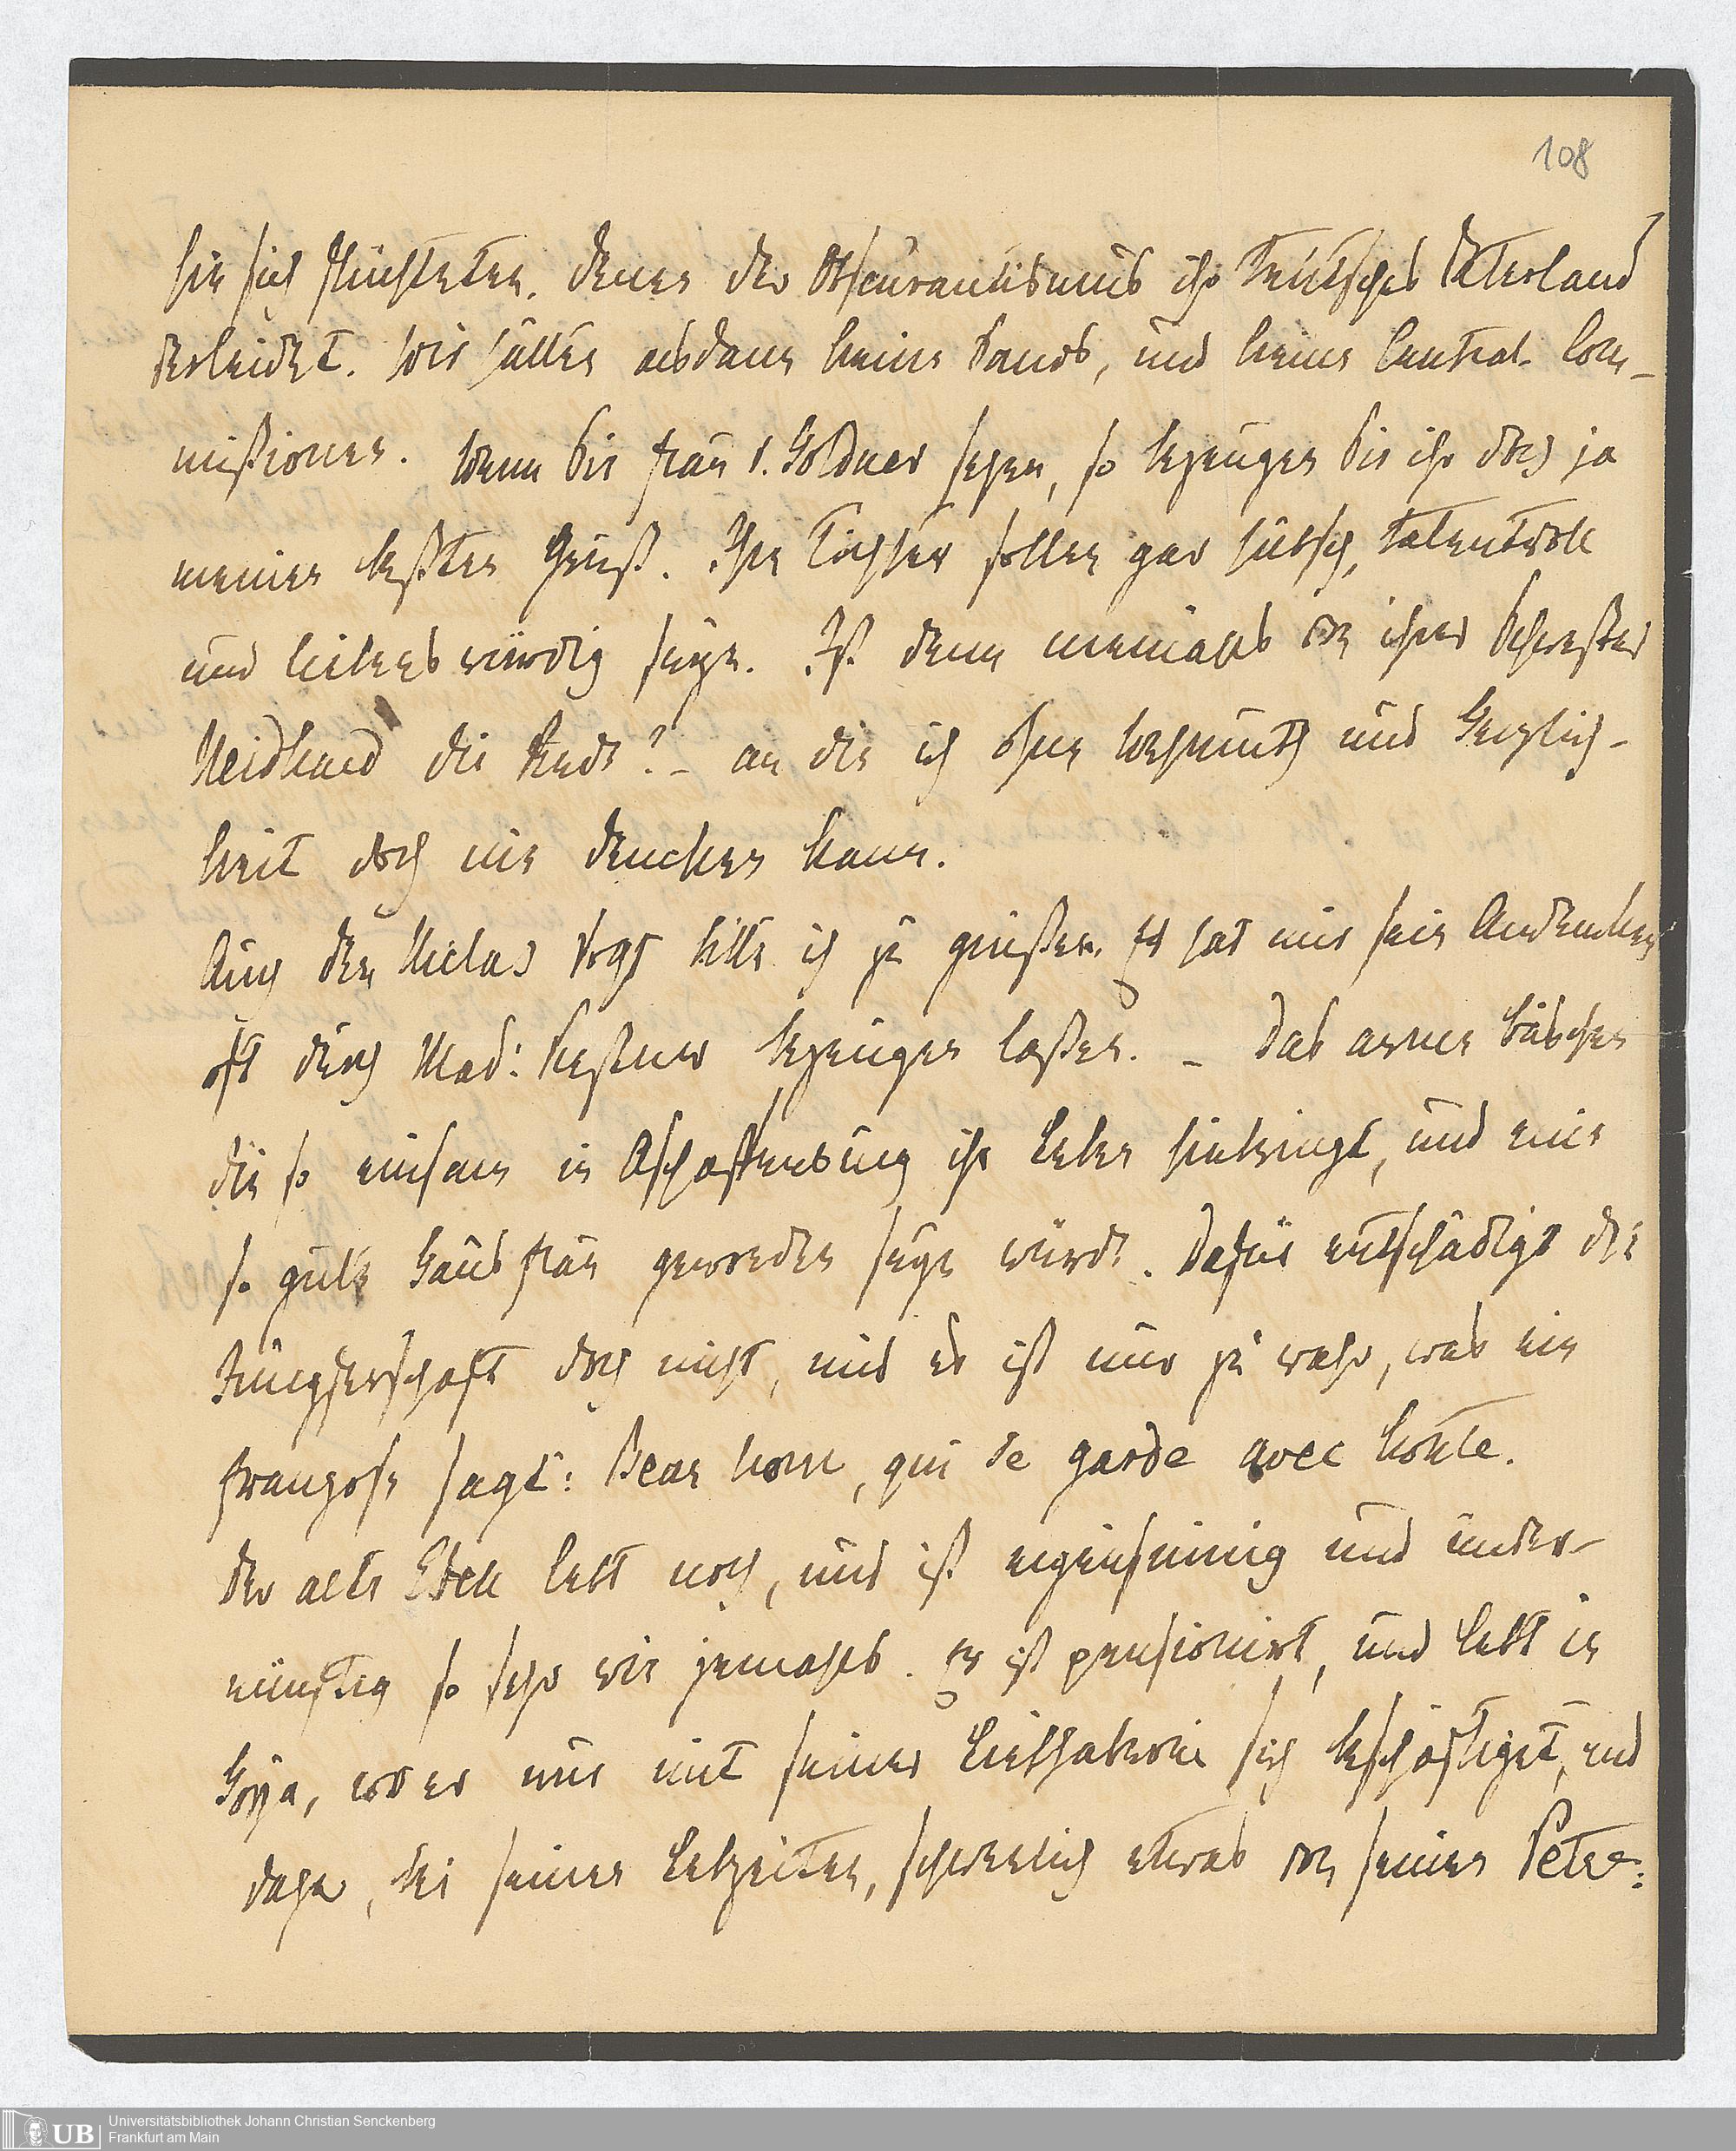 108
hin sich flüchteten, denen der Obscurantismus ihr Teutsches Vaterland
verleidet. Wir hätten alsdann keine Sands, und keine Central-Com-
mißionen. Wenn Sie Frau v. Goldner sehen, so bezeugen Sie ihr doch ja
meinen besten Gruß. Ihre Töchter sollen gar hübsch, talentvoll
und liebenswürdig seyn. Ist denn niemals von ihrer Schwester
Neidhard die Rede? – an die ich ohne Wehmuth und Herzlich-
keit doch nie dencken kann.
Auch den Niclas Vogt bitte ich zu grüßen. Er hat mir sein Andencken
oft durch Mad: Keßner bezeugen laßen. – Das arme Bäschen
die so einsam in Aschaffenburg ihr Leben hinbringt, und eine
so gute Hausfrau geworden seyn würde. Dafür entschädigt die
Jungferschaft doch nicht, und es ist nur zu wahr, was ein
Franzose sagt: Beau nom, qui se garde avec honte.
Der alte Edell lebt noch, und ist eigensinnig und unver-
nünftig so sehr wie jemahls. Er ist pensionirt, und lebt in
Hoya, wo er nur mit seiner Liebhaberei sich beschäftiget, und
daher, bei seinen Lebzeiten, schwerlich etwas von seinen Petre:
Universitätsbibliothek Johann Christian Senckenberg
UB Frankfurt am Main